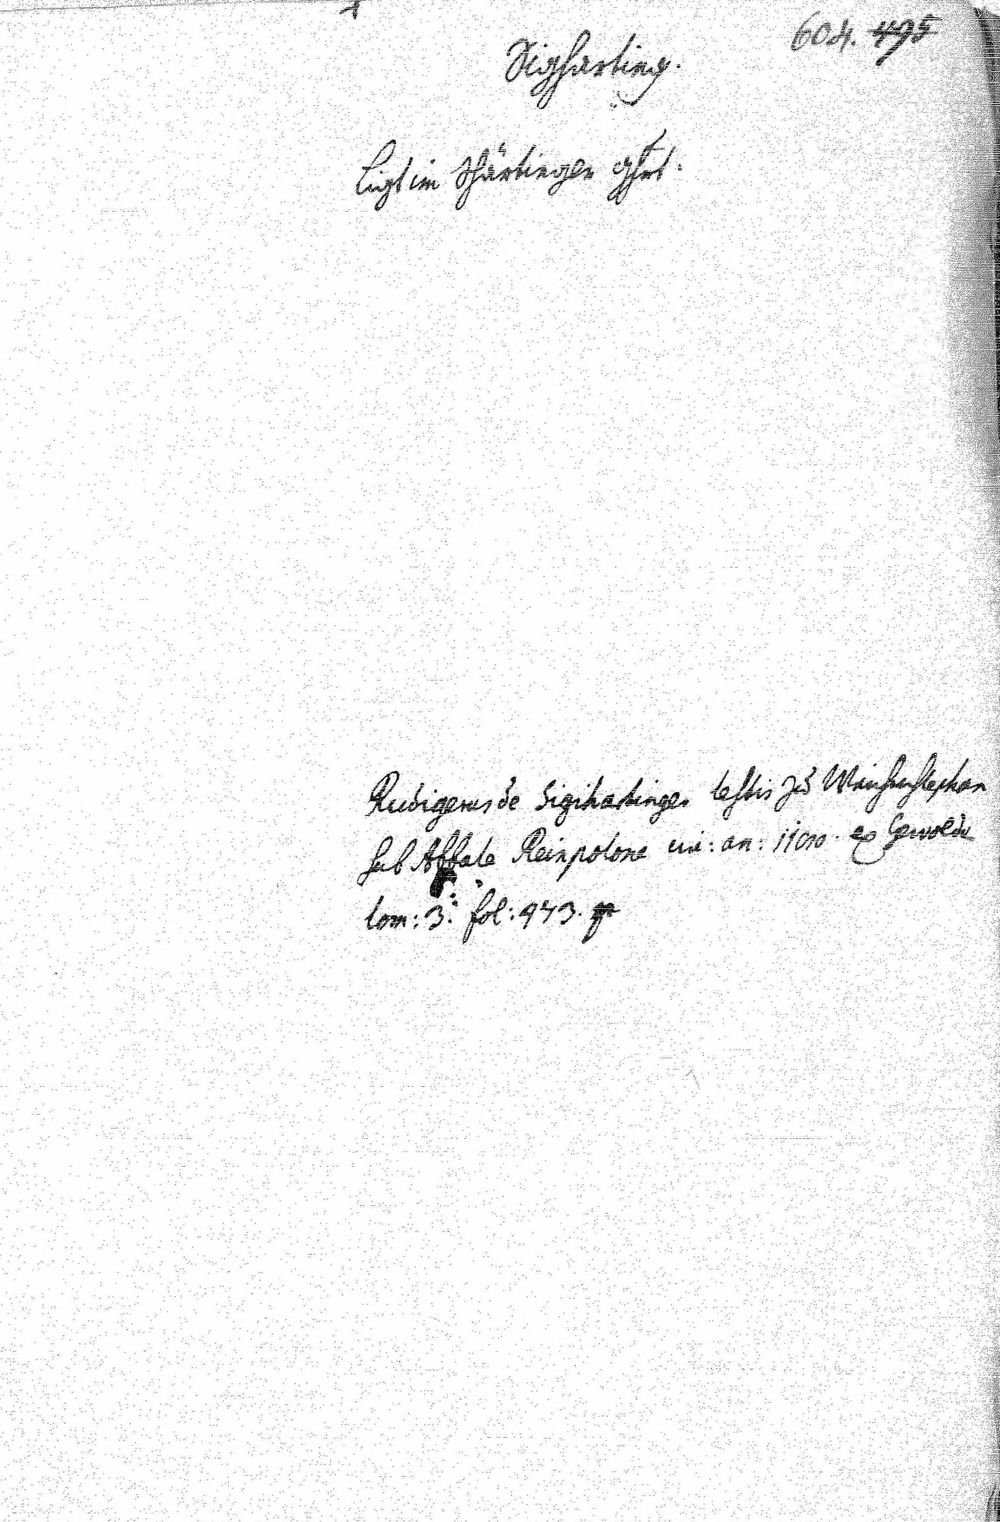 604. 495
Sigharting.
Ligt im Schärtinger ghrt.
Rudigerus de Sigihartingen testis zu Weichenstephan
sub Abbate Reinpotone an: ex Gewoldo
tom: 3. fol: 473.